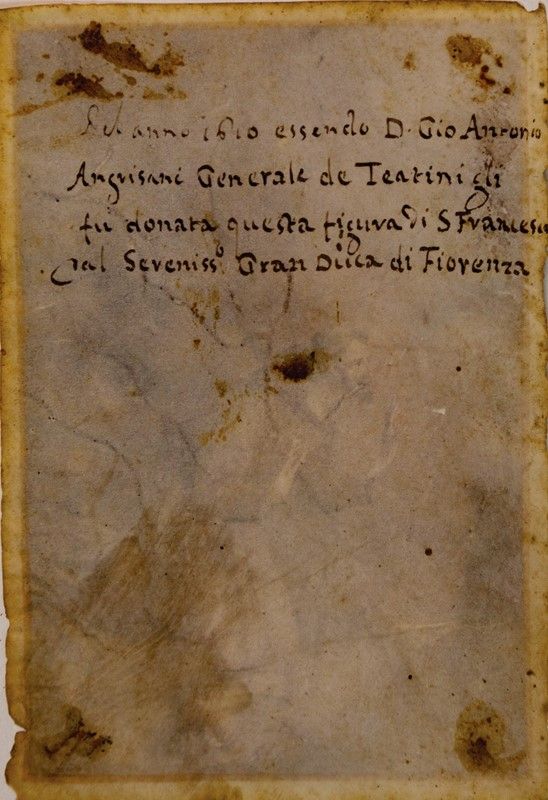 Del anno 1610 essendo D. Gio Antonio
Angrisani Generale de Teatini gli
fu donata questa figura di S Francesco
dal Sereniss.o Gran Duca di Fiorenza